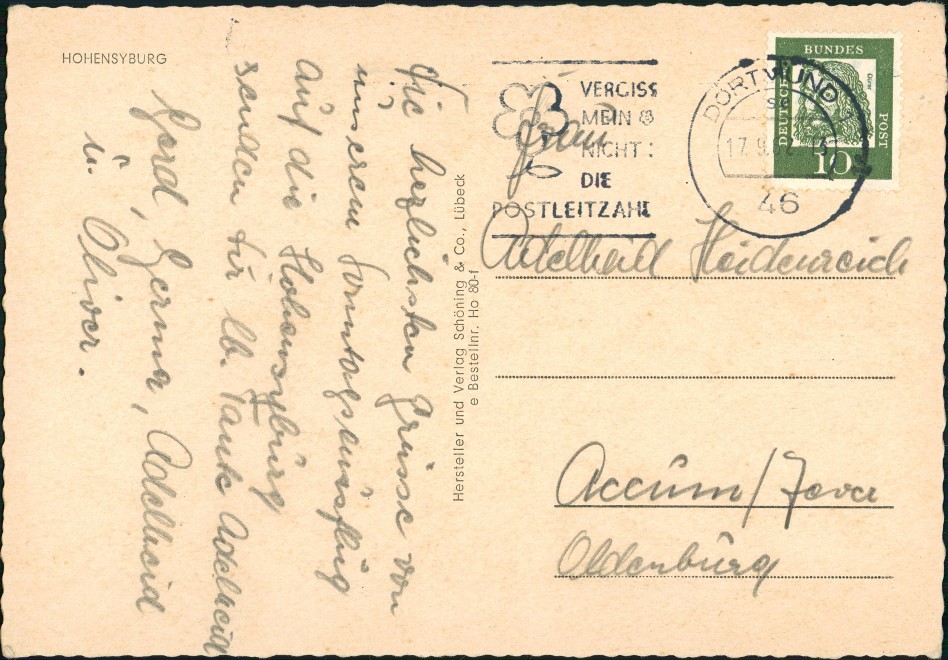 HOHENSYBURG
Die herzlichsten Grüsse von
unserem Sonntagsausflug
auf die Hohensyburg
senden dir lb. Tante Adelheid
Gerd, Germa, Adelheid
u. Oliver.
Hersteller und Verlag Schöning & Co., Lübeck
Bestellnr. Ho 80-f
VERGISS
MEIN
NICHT:
DIE
POSTLEITZAHL
DORTMUND
17.9.
46
DEUTSCHE
BUNDES
POST
10
Frau
Adelheid Heidenreich
Accum/Jever
Oldenburg